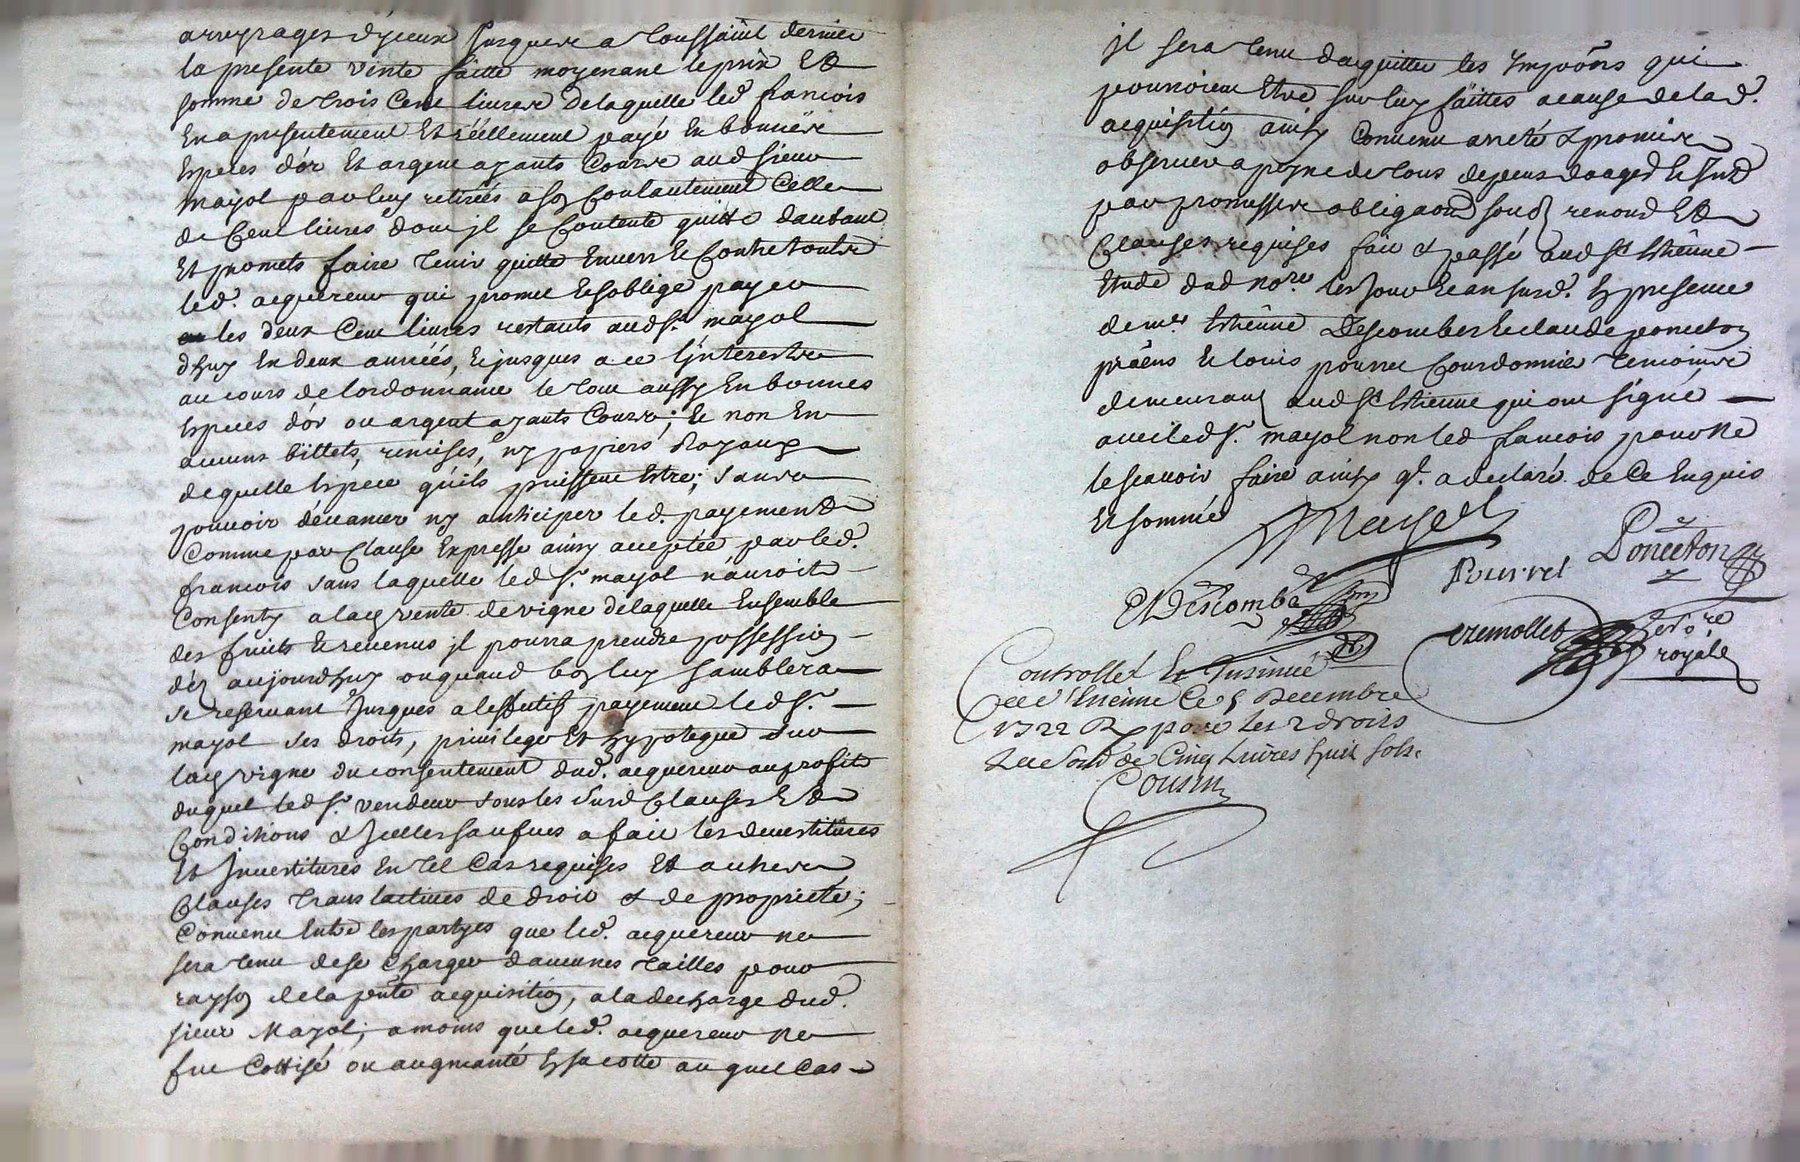 arreyrages d'jceux jusques a Toussaint dernier
la presente vente faitte moyenant le prix Et
somme de trois Cent livres de laquelle led. francois
En a presentement Et réellement payé En bonnes
Especes d'or Et argent ayants Cours aud sieur
mayol par luy retirées a son Contantement Celle
de Cent livres dont jl se Contente quitte d'autant
Et promets faire tenir quitte Envers Et Contre toutes
led. acquereur qui promet Et soblige payer
les deux Cent livres restants aud sr. mayol
d'huy En deux années, Et jusques a ce l'jnterests
au cours de lordonnance le tout aussy En bonnes
Especes d'or ou argent ayants Cours; Et non En
aucuns billets, remises, ny papiers Royaux
de quelle Espece qu'ils puissent Estre; sans
pouvoir devancer ny anticiper led. payement
Comme par Clause Expresse ainsy acceptée par led.
francois sans laquelle led sr. mayol n'auroit
Consenty a lad. vente de vigne de laquelle Ensemble
des fruits Et revenus jl pourra prendre possession
dez aujourdhuy ou quand bon luy samblera
se reservant jusques a leffectif payement led sr.
mayol ses droits, privilege Et hypoteque sur
lad. vigne du consentement dud. acquereur au profit
duquel led sr. vendeur sous les susd Clauses Et
Conditions & jcelles saufves a fait les devestitures
Et jnvestitures En tel Cas requises Et autres
Clauses translatives de droit & de proprieté;
Convenu Entre les partyes que led. acquereur ne
sera tenu de se charger d'aucunes tailles pour
rayson de la pnte acquisition, a la decharge dud.
sieur Mayol, a moins que led. acquereur ne
fut Cottisé ou augmanté En sa cotte au quel Cas
jl sera tenu dacquitter les Impoons qui
pourroient Etre sur luy faittes a cause de lad.
acquisition ainsy Convenu arreté & promis
observer a peyne de tous depens
par promesses obligaons renonc Et
Clauses requises fait & passé aud St Etienne
Etude dud nore. les jour Et an susd. En presence
de me. Estienne Descombes Et claude ponceton
pratiens Et Louis pourret Courdonnier temoins
demeurant aud St Estienne qui ont signé
avec led sr. mayol non led francois pour ne
le scavoir faire ainsy q. a declaré de Ce Enquis
Et sommé
Mayol
Ponceton
Pourret
E Descombes
Controllé Et Insinué
a St Etienne Ce 5 Decembre
1722 R pour les 2 droits
Cinq Livres huit sols
Cousin
royal